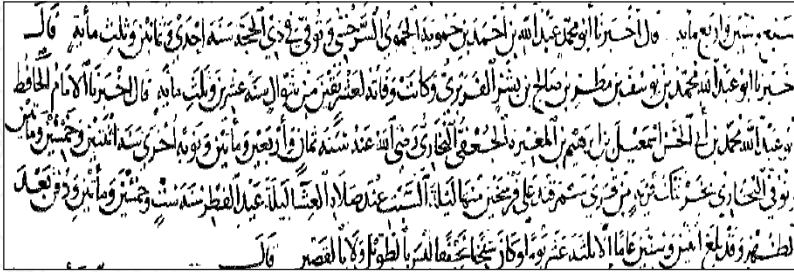 سبعه وستين واربع مايه قال اخبرنا ابو محمد عبد الله بن احمد بن حمويه الحموى السرخسى وتوفى فى ذى الحجه سنه احدى وثمانين وثلث مايه قال
اخبرنا ابو عبد الله محمد بن يوسف بن مطر بن صالح بن بشر الفربرى وكانت وفاته لعشر بقين من شوال سنه عشرين وثلث مايه قال اخبرنا الامام الحافظ
ابو عبد الله محمد بن ابى الحسن اسمعيل بن ابرهيم بن المغيره الجعفى البخارى رضى الله عنه سنه ثمان واربعين ومأتين ونوبه اخرى سنه اثنتين وخمسين ومأتين
وتوفى البخارى بخرتنك قريه من قرى سمرقند على فرسخين منها ليلة السبت عند صلاة العشا ليلة عيد الفطر سنه ست وخمسين ومأتين ودفن بعد
الظهر وقد بلغ اثنين وستين عاما الا ثلثة عشر يوما وكان شيخا نحيفا ليس بالطويل ولا بالقصير قال